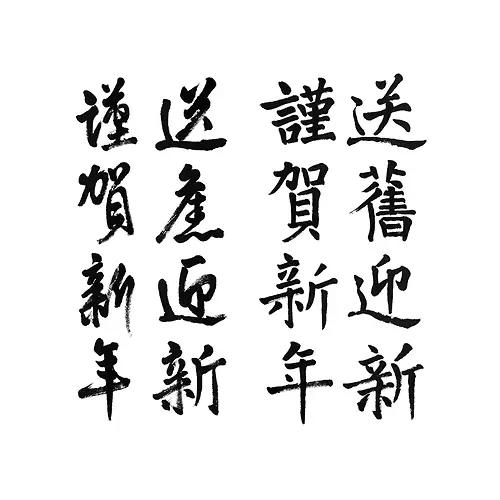 送舊迎新
謹賀新年
送舊迎新
謹賀新年